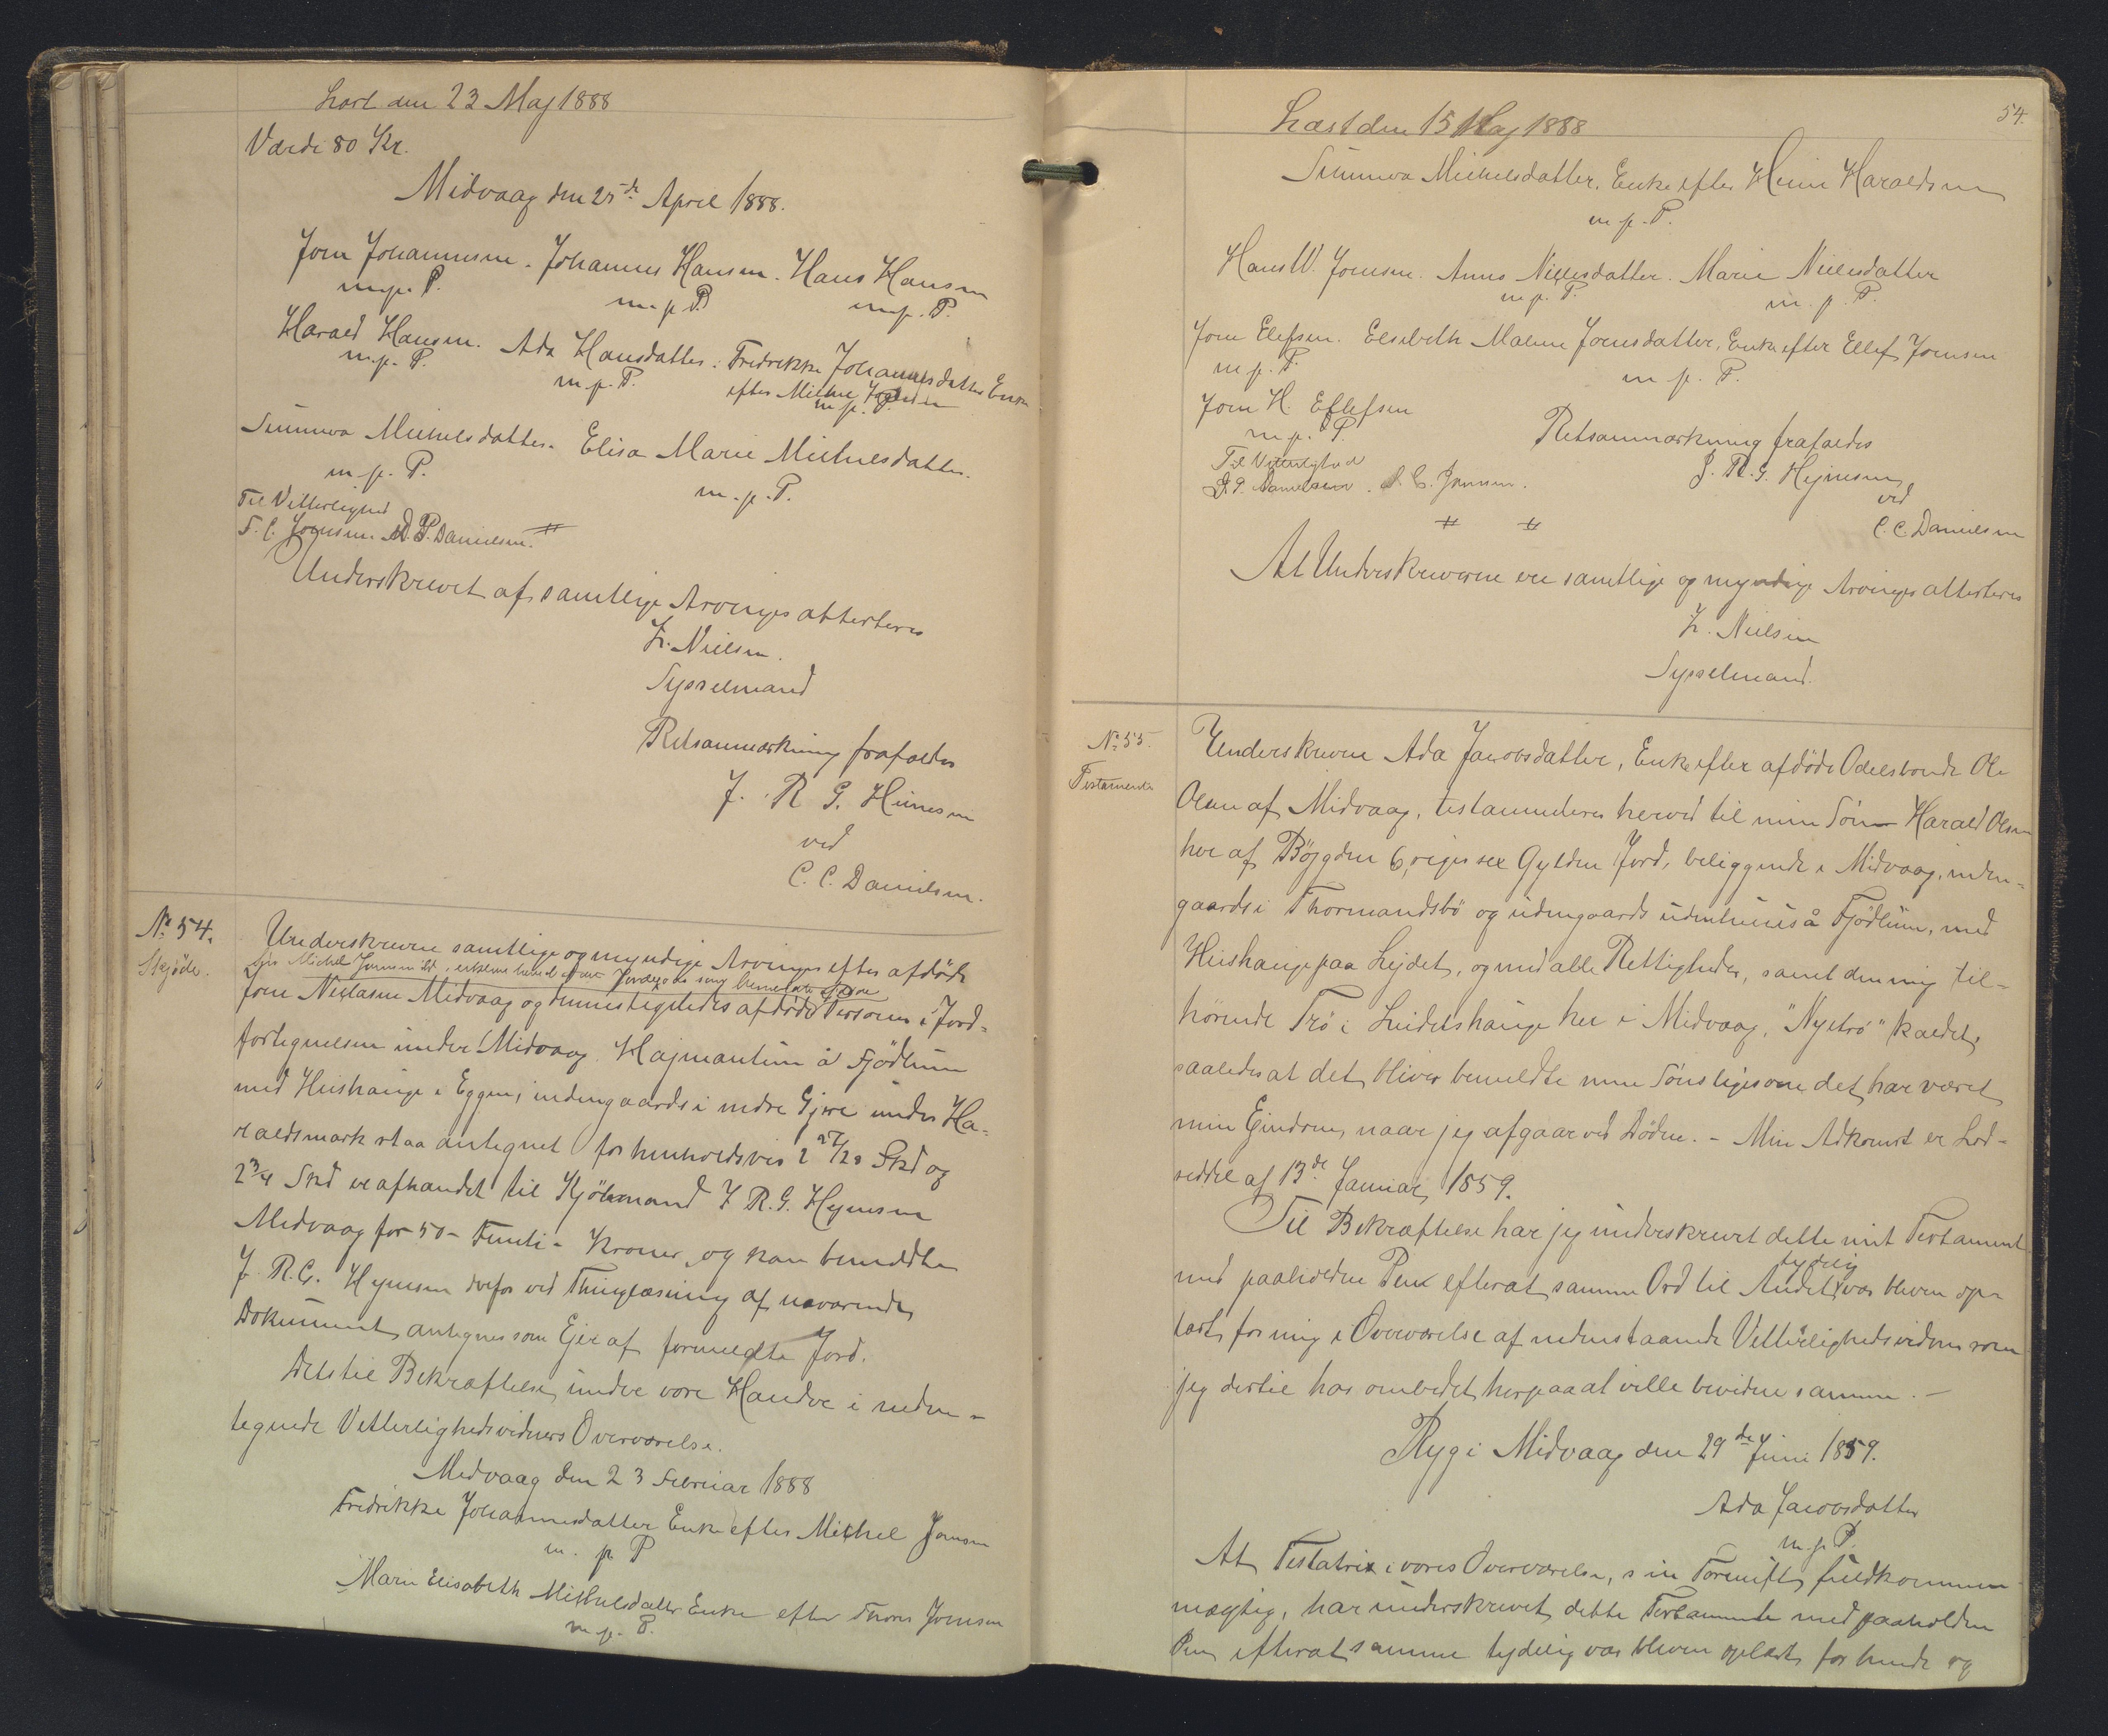 Læst den 23 Maj 1888
Værdi 80 Kr.
Midvaag den 25de April 1888.
Joen Johannesen. Johannes Hansen. Hans Hansen
m. p. P. m. p. P. m. p. P.
Harald Hansen. Ada Hansdatter. Fredrikke Johannesdatter Enke
m. p. P. m. p. P. efter Michel Joensen
m. p. P.
Sunneva Michelsdatter. Elisa Marie Michelsdatter.
m. p. P. m. p. P.
Til Vitterlighed
J. C. Joensen. D. P. Danielsen.
Underskrevet af samtlige Arvinger attesteres
Z. Nielsen.
Sysselmand
Retsanmærkning frafaldes
J. R. G. Heinesen
ved
C. C. Danielsen.
No 54.
Skjøde.
Underskrevne samtlige og myndige Arvinger efter afdøde
Joen Niclasen Midvaag og hvem ligeledes afdøde Persons i Jord-
fortegnelsen under Midvaag Hajmantún á Fjødlum
med Hushauge i Eggen, indengaards i indre Gjere under Ha-
raldsmark staa antegnet for henholdsvis 2 27/28 Skd og
2 3/4 Skd er afhandet til Kjøbmand J. R. G. Hejnesen
Midvaag for 50 - Femti - Kroner, og kan bemeldte
J. R. G. Hejnesen derfor ved Thinglæsning af nærværende
Dokument antegnes som Ejer af formeldte Jord.
Dets til Bekræftelse under vore Hænder i neden-
tegnede Vitterlighedsvidners Overværelse.
Midvaag den 23 Februar 1888
Fredrikke Johannesdatter Enke efter Michel Joensen
m. p. P
Marie Elisabeth Michelsdatter Enke efter Thomas Joensen
m. p. P.
54.
Læst den 15 Maj 1888
Sunneva Michelsdatter, Enke efter Heine Haraldsen
m. p. P.
Hans W. Joensen. Anna Nielsdatter. Marie Nielsdatter
m. p. P. m. p. P.
Joen Elefsen. Elsebeth Malene Joensdatter, Enke efter Ellef Joensen
m. p. P. m. p. P.
Joen H. Ellefsen
m. p. P. Retsanmærkning frafaldes
Til Vitterlighed J. R. G. Hejnesen
D. P. Danielsen. J. C. Joensen. ved
C. C. Danielsen
At Underskriverne ere samtlige og myndige Arvinger attesteres
Z. Nielsen
Sysselmand.
No 55.
Testamente
Underskrevne Ada Jacobsdatter, Enke efter afdøde Odelsbonde Ole
Olsen af Midvaag, testamenterer herved til min Søn Harald Olsen
her af Bøjgden 6, siger sex Gylden Jord, beliggende i Midvaag, inden-
gaards i Thormandsbø og udengaards á Fjødlum, med
Hushauge paa Lejdet, og med alle Rettigheder, samt den mig til-
hørende Trø i Leidelshauge her i Midvaag, "Nyetrø" kaldet,
saaledes at det bliver bemeldte min Søns ligesom det har været
min Ejendom, naar jeg afgaar ved Døden. - Min Adkomst er Lod-
seddel af 13de Januar 1859.
Til Bekræftelse har jeg underskrevet dette mit Testament
med paaholden Pen efterat samme Ord til Andet tydelig var bleven op-
læst for mig i Overværelse af nedenstaaende Vitterlighedsvidner som
jeg dertil har ombedet herpaa at ville bevidne samme. -
Ryg i Midvaag den 29de Juni 1859.
Ada Jacobsdatter
m. p. P.
At Testatrix i vores Overværelse, sin Fornuft fuldkommen
mægtig, har underskrevet dette Testamente med paaholden
Pen efterat samme tydelig var bleven oplæst for hende og